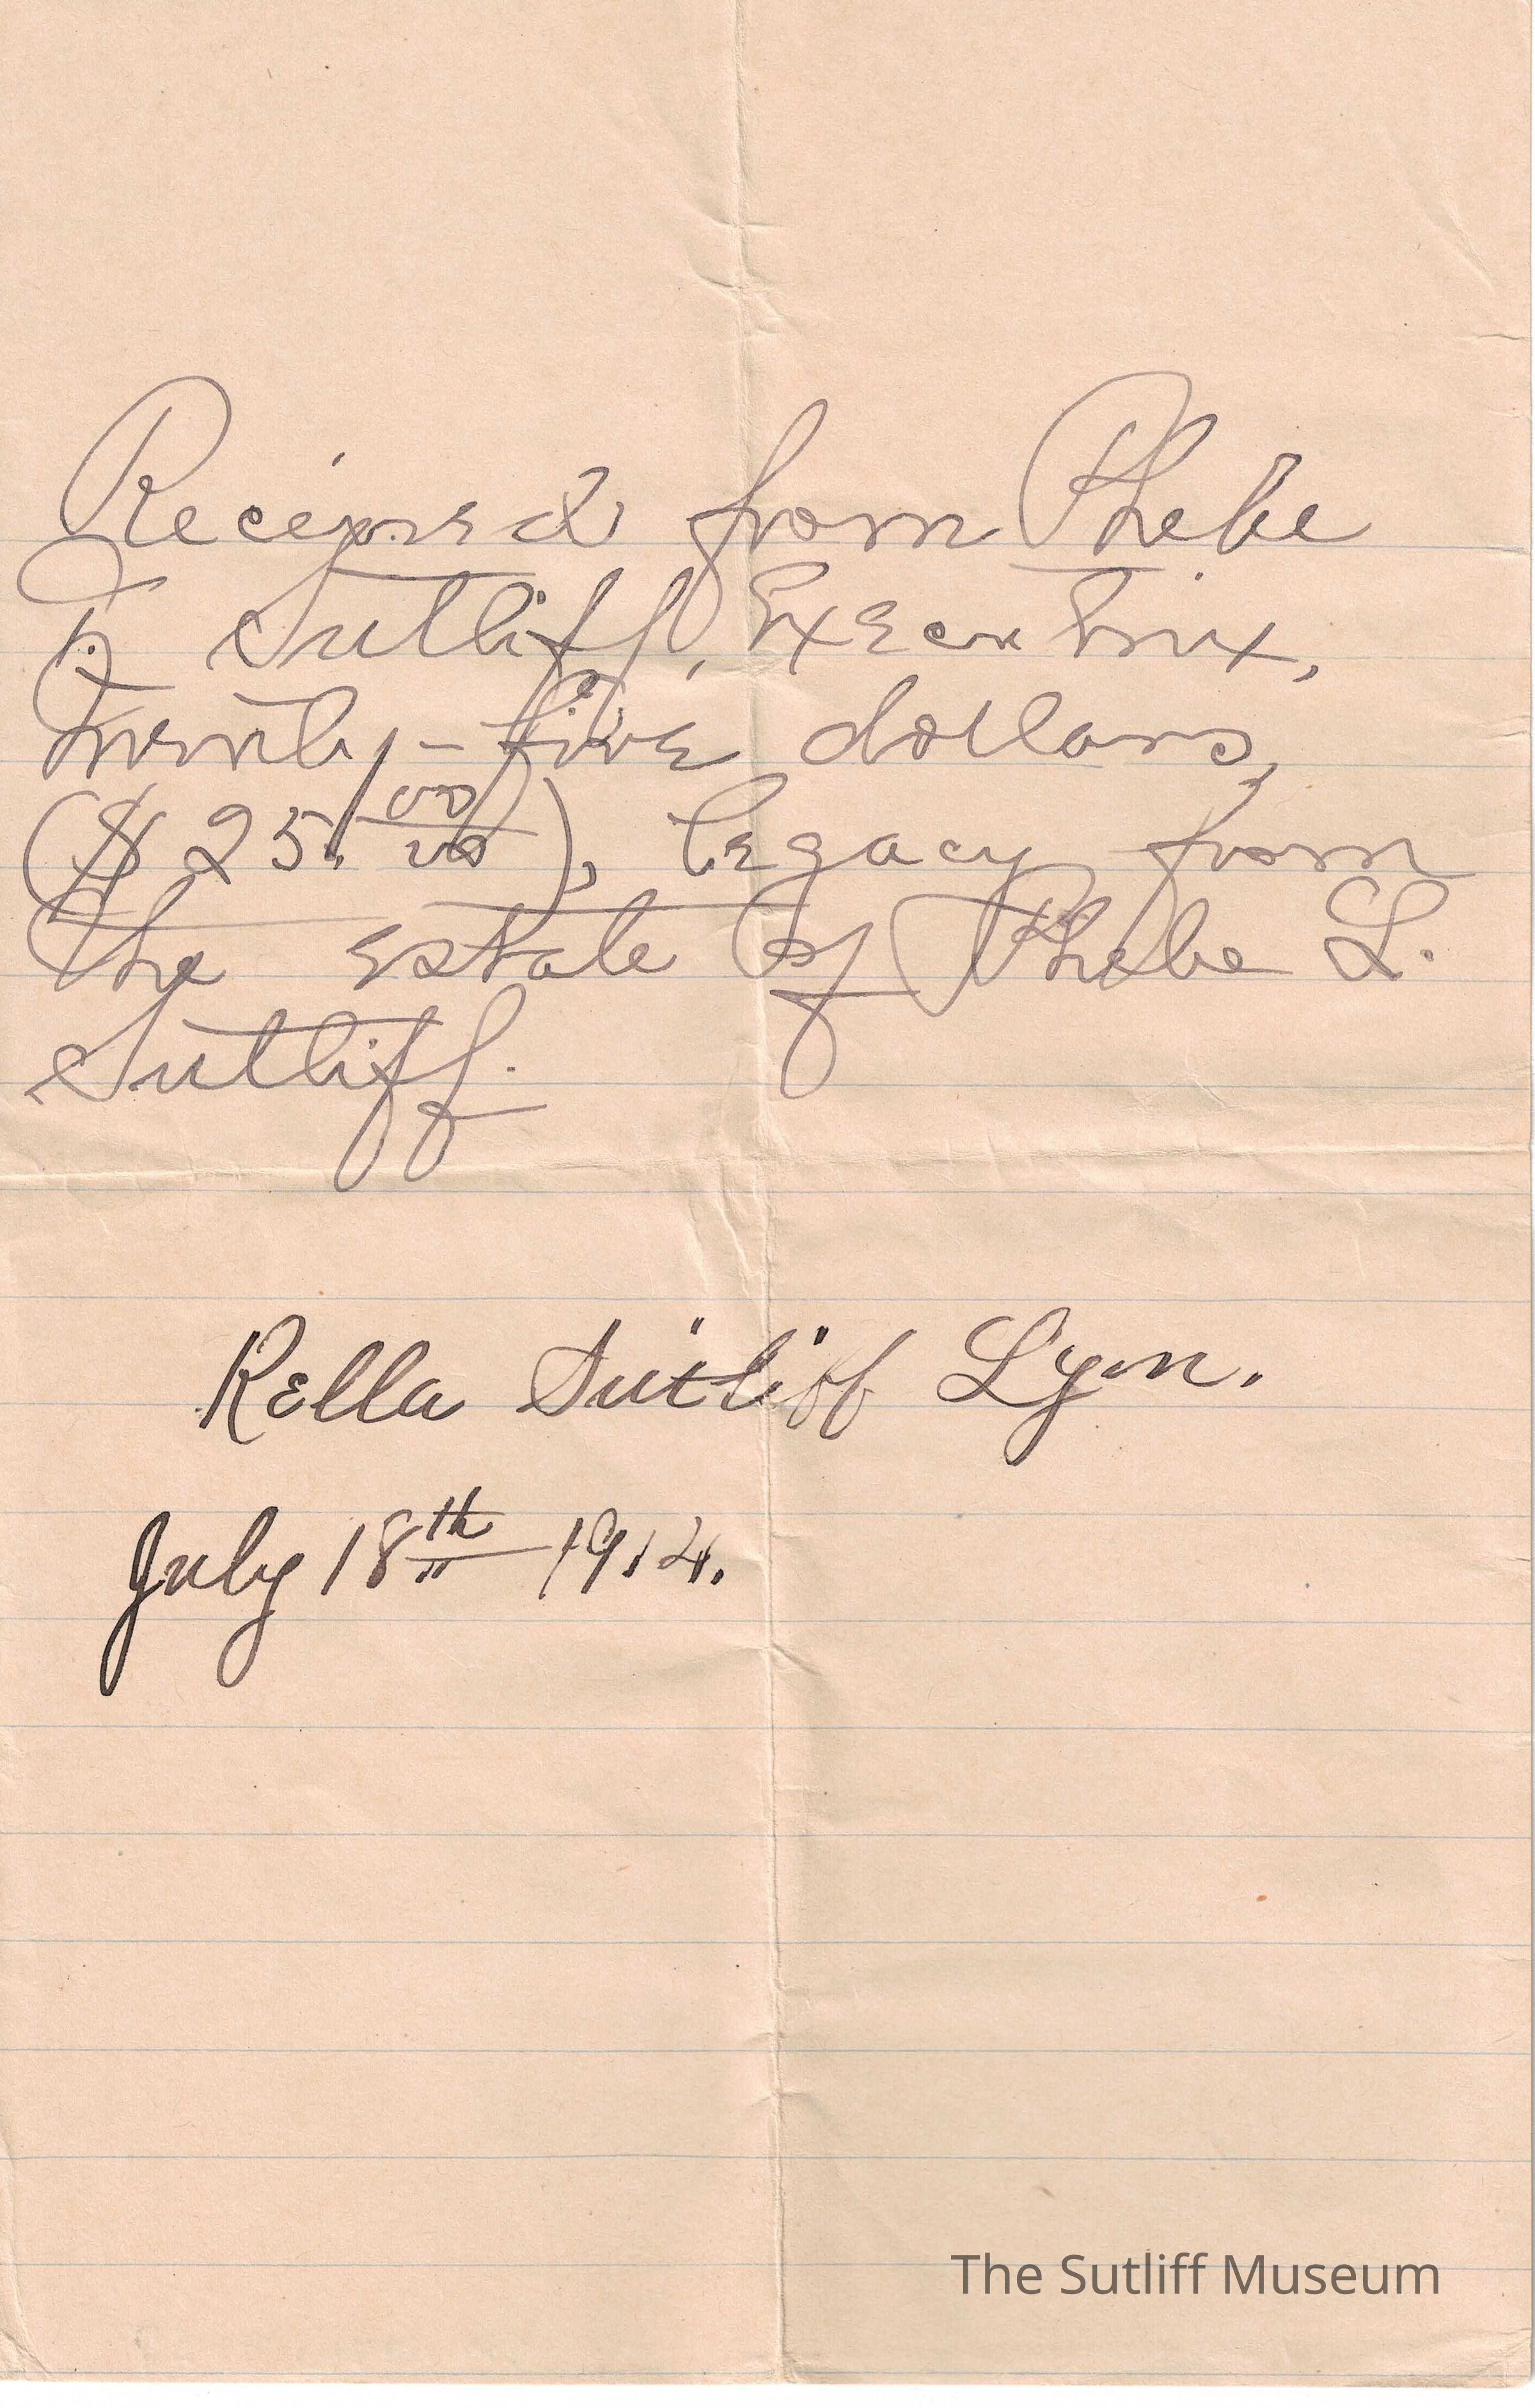 Received from Phebe
T. Sutliff, Executrix,
Twenty-five dollars,
($25.00/00), legacy from
the estate of Phebe L.
Sutliff.
Rella Sutliff Lyn.
July 18th 1914.
The Sutliff Museum